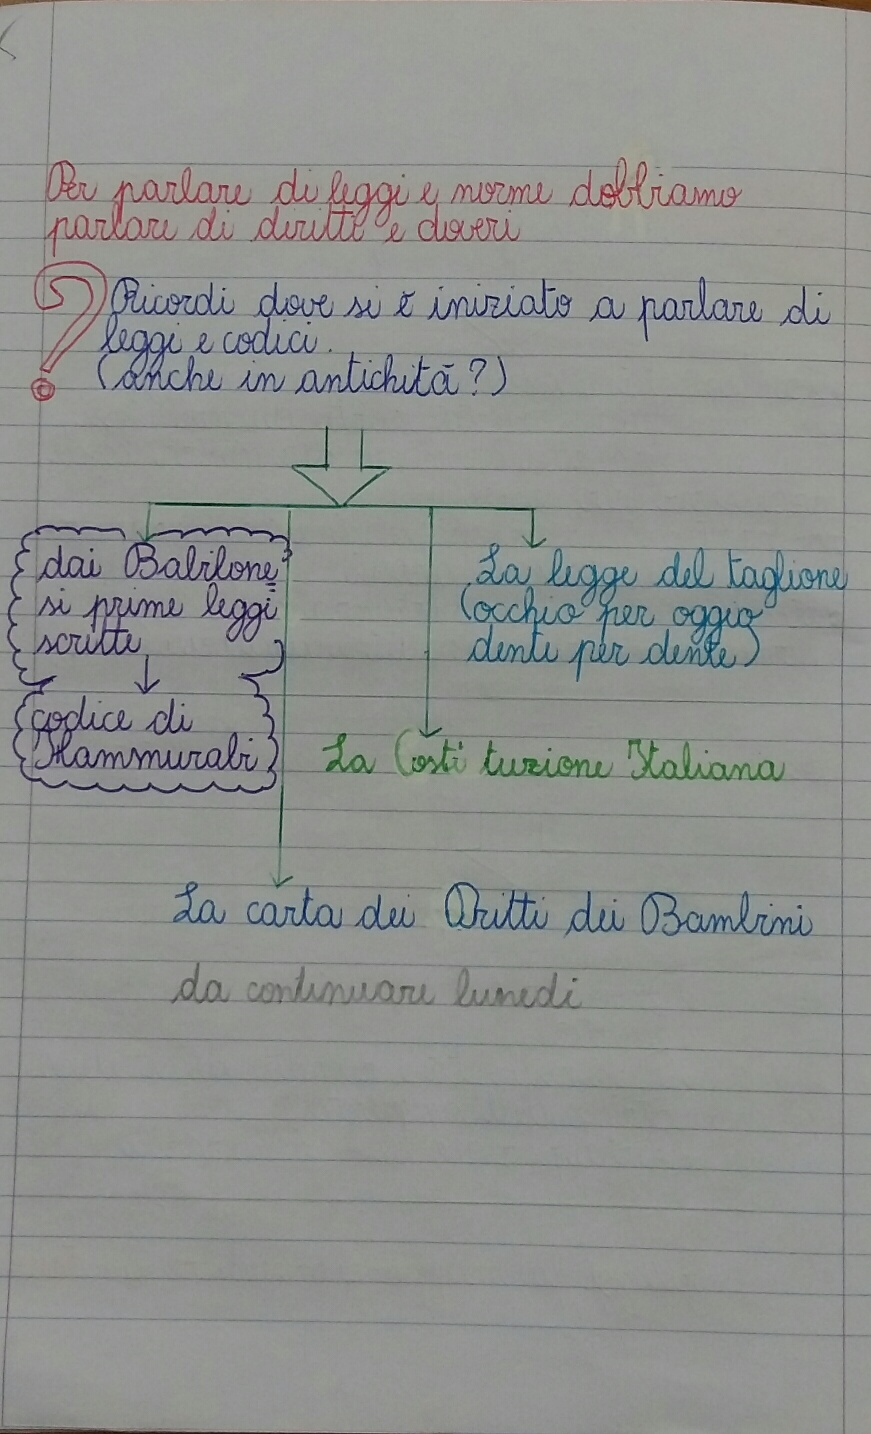 Per parlare di leggi e norme dobbiamo
parlare di diritti e doveri
? Ricordi dove si è iniziato a parlare di
leggi e codici.
(anche in antichità?)
dai Babilone
si prime leggi
scritte
codice di
Hammurabi
La legge del taglione
(occhio per oggio
dente per dente)
La Costi tuzione Italiana
La carta dei Dritti dei Bambini
da continuare lunedi